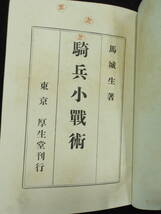 馬城生著
騎兵小戰術
東京 厚生堂刊行